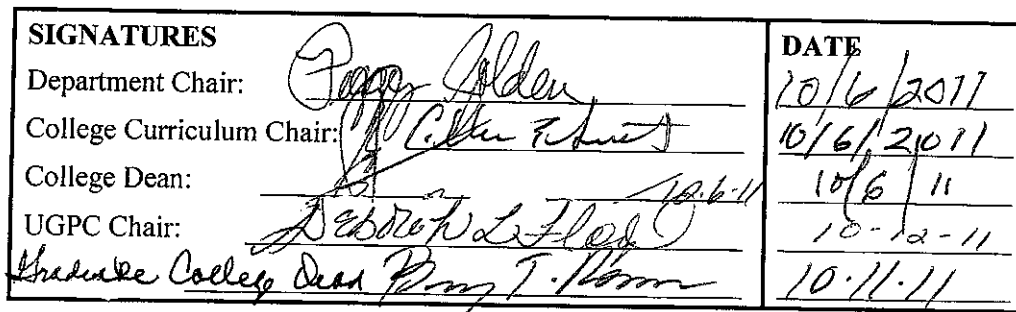 SIGNATURES DATE
Department Chair: Peggy Golden 10/6/2011
College Curriculum Chair: 10/6/2011
College Dean: 10.6.11 10/6/11
UGPC Chair: Deborah L. Floyd 10-12-11
Graduate College Dean T. 10.11.11